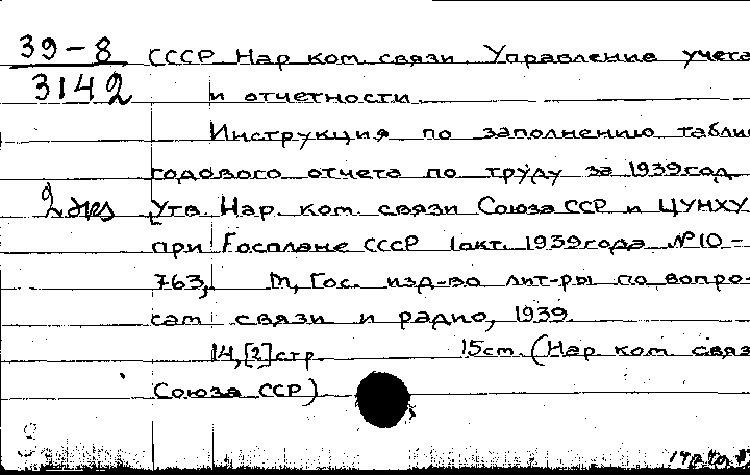 39-8
3142
СССР Нар. ком. связи. Управление учета
и отчетности.
Инструкция по заполнению табли
годового отчета по труду за 1939 год.
2 экз
Утв. Нар. ком. связи Союза ССР и ЦУНХУ
при Госплане СССР 1 окт. 1939 года №10-
763,. М., Гос. изд-во лит-ры по вопро-
сам связи и радио, 1939.
14,[2]стр. 15 см. (Нар. ком. связ
Союза ССР)